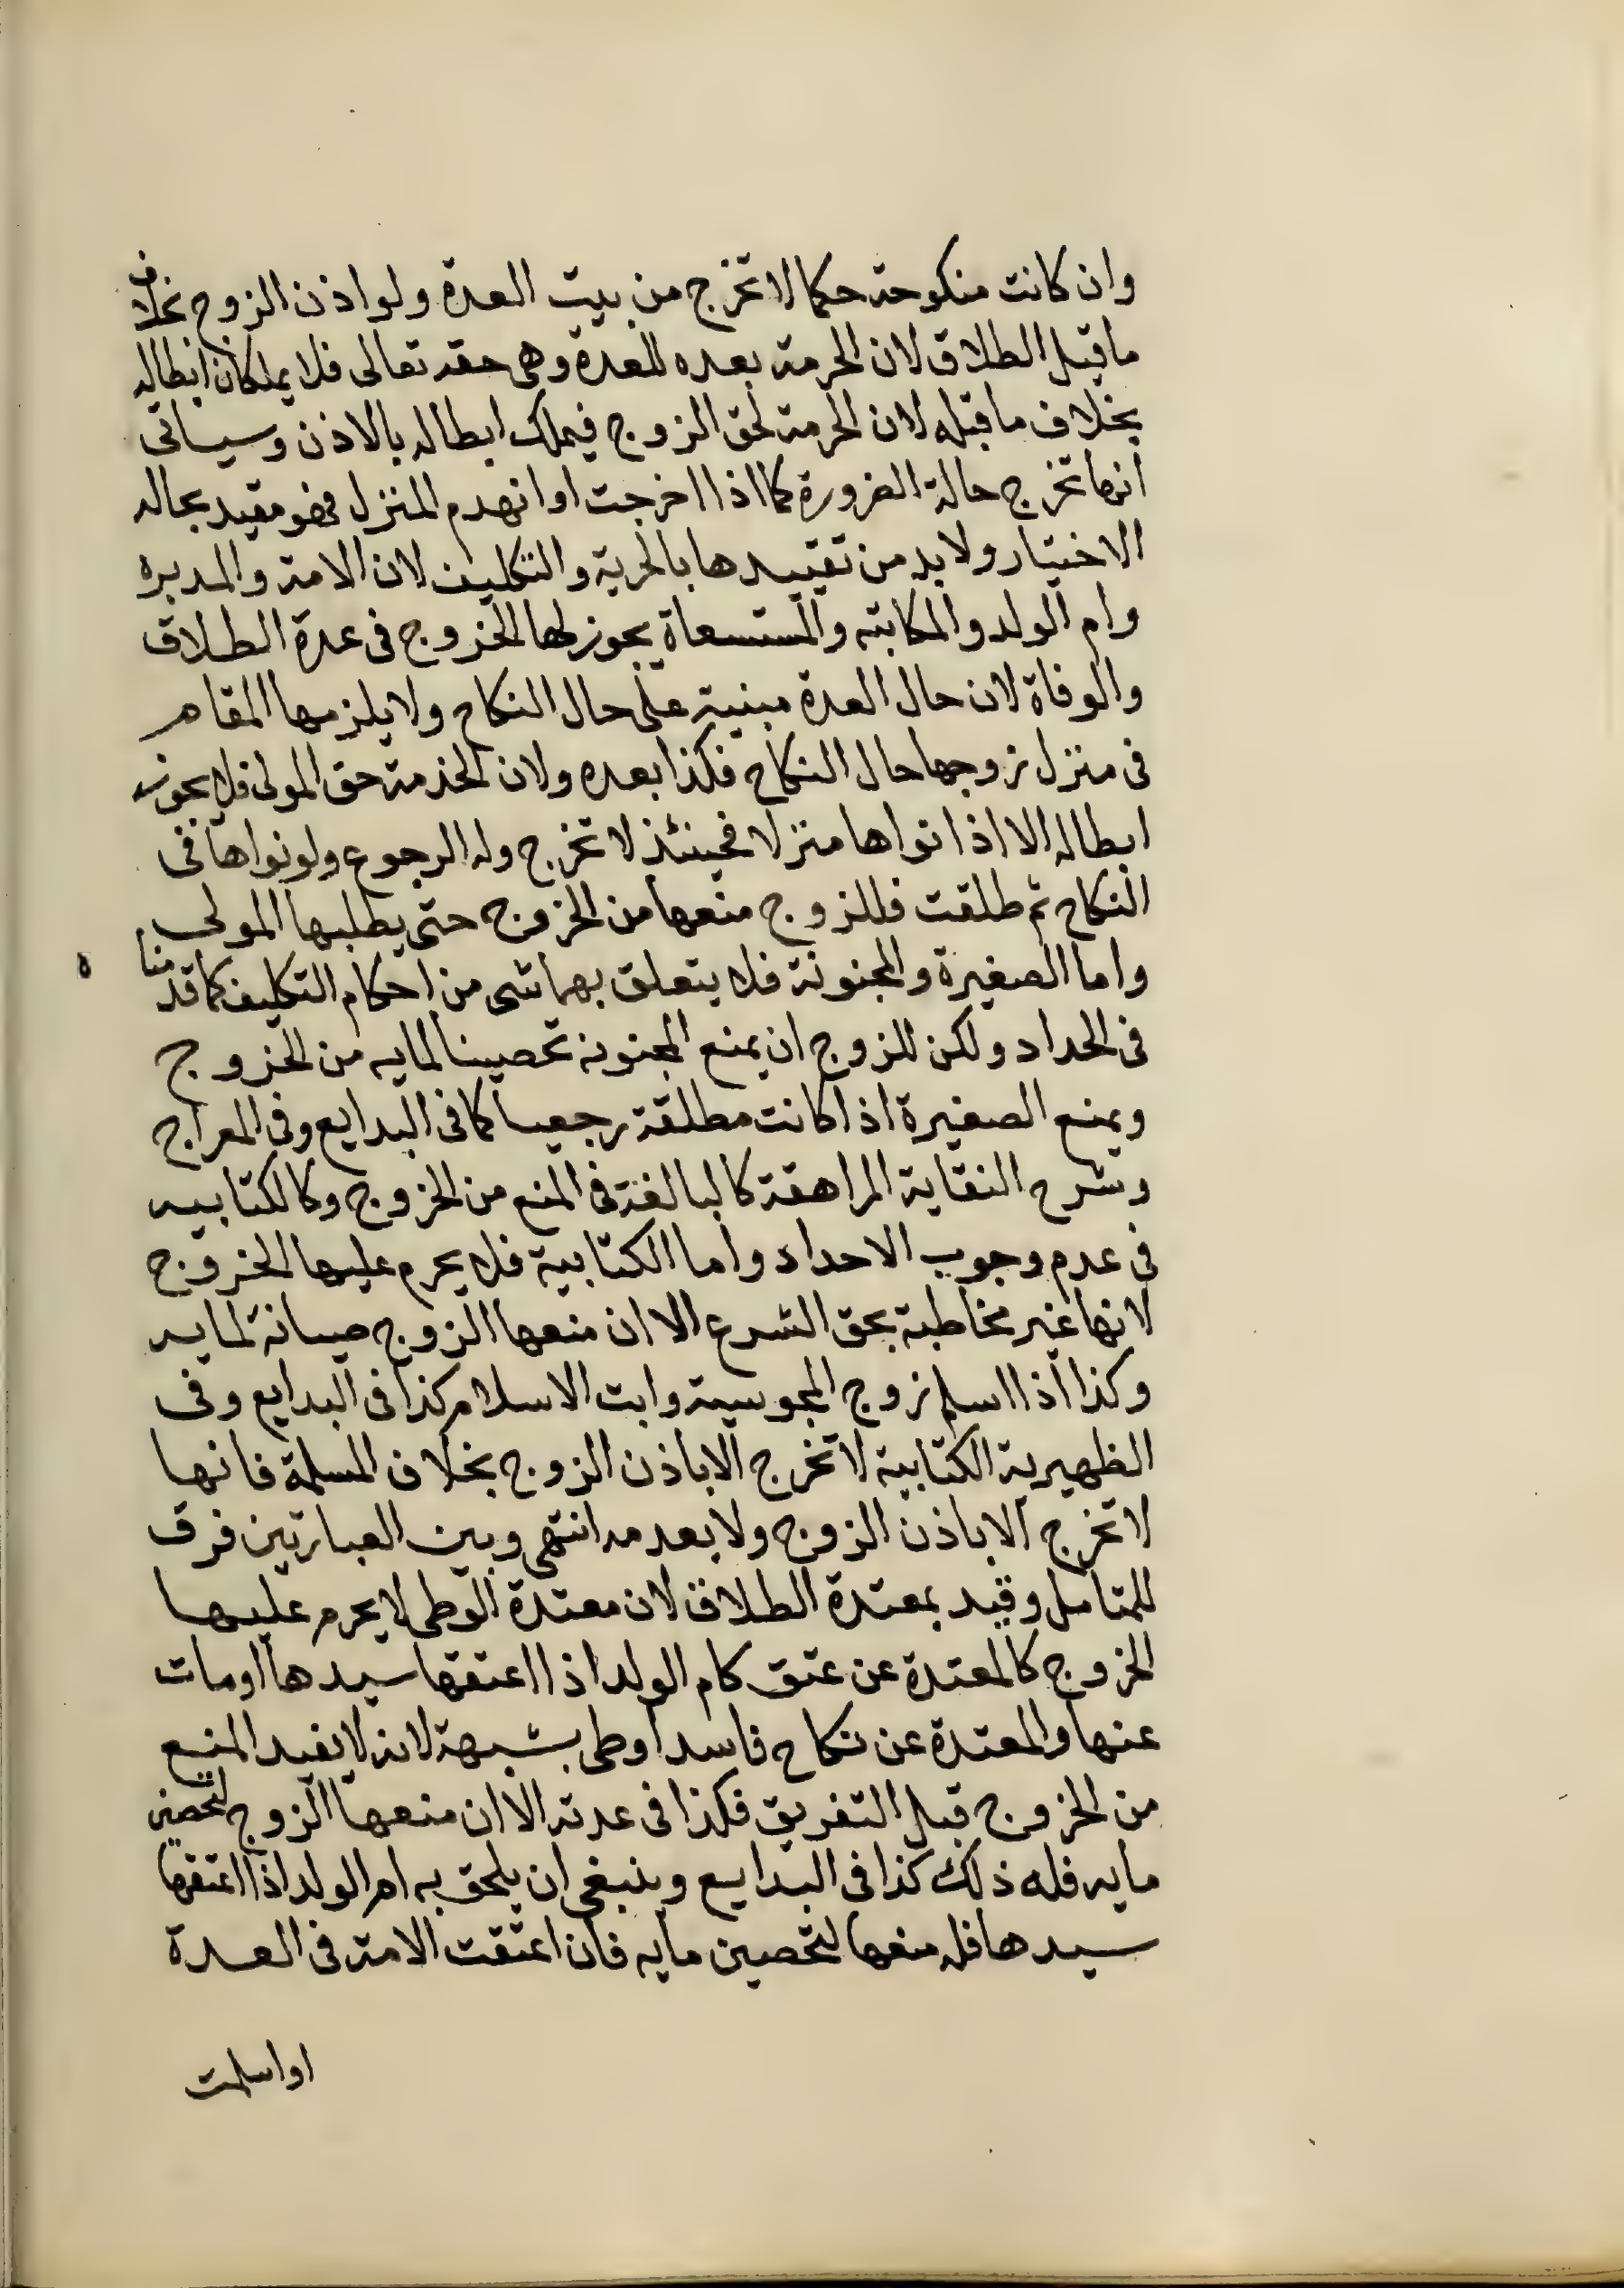 وان كانت منكوحة حكما لا تخرج من بيت العدة ولو اذن الزوج بخلاف
ما قبل الطلاق لان الحرمة بعده للعدة وهى حقه تعالى فلا يملكان ابطاله
بخلاف ما قبله لان الحرمة لحق الزوج فيملك ابطاله بالاذن وسياتى
انها تخرج حالة الضرورة كما اذا اخرجت او انهدم المنزل فهو مقيد بحاله
الاختيار ولا بد من تقييدها بالحرية والتكليف لان الامة والمدبره
وام الولد والمكاتبه والمستسعاة يجوز لها الخروج فى عدة الطلاق
والوفاة لان حال العدة مبنية على حال النكاح ولا يلزمها المقام
فى منزل زوجها حال النكاح فكذا بعده ولان الخدمة حق المولى فلا يجوز
ابطاله الا اذا بواها منزلا فحينئذ لا تخرج وله الرجوع ولو بواها فى
النكاح ثم طلقت فللزوج منعها من الخروج حتى يطلبها المولى
واما الصغيرة والمجنونة فلا يتعلق بهما شى من احكام التكليف كما قدمنا ه
فى الحداد ولكن للزوج ان يمنع المجنونه تحصينا لمايه من الخروج
ويمنع الصغيرة اذا كانت مطلقة رجعيا كما فى البدايع وفى المعراج
وشرح النقاية المراهقة كالبالغة فى المنع من الخروج وكالكتابيه
فى عدم وجوب الاحداد واما الكتابية فلا يحرم عليها الخروج
لانها غير مخاطبة بحق الشرع الا ان منعها الزوج صيانة لمايه
وكذا اذا اسلم زوج المجوسية وابت الاسلام كذا فى البدايع وفى
الظهيرية الكتابية لا تخرج الا باذن الزوج بخلاف المسلمة فانها
لا تخرج الا باذن الزوج ولا بعدمه انتهى وبين العبارتين فرق
للمتامل وقيد بمعتدة الطلاق لان معتدة الوطى لا يحرم عليها
الخروج كالمعتدة عن عتق كام الولد اذا اعتقها سيدها او مات
عنها والمعتدة عن نكاح فاسد او وطى بشبهة لانه لا يفيد المنع
من الخروج قبل التفريق فكذا فى عدته الا ان منعها الزوج لتحصين
مايه فله ذلك كذا فى البدايع وينبغى ان يلحق به ام الولد اذا اعتقها
سيدها فله منعها لتحصين مايه فان اعتقت الامة فى العدة
او اسلمت